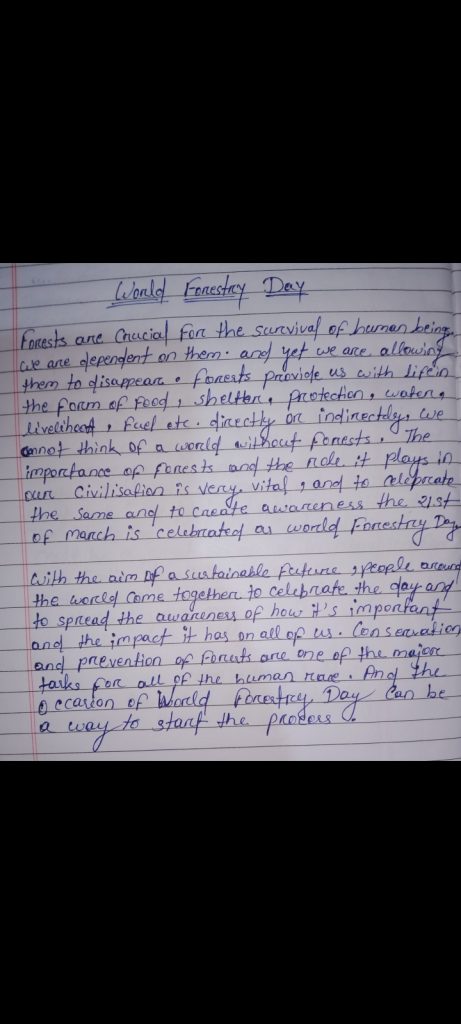 World Forestry Day
Forests are Crucial for the survival of human being,
we are dependent on them. and yet we are allowing
them to disappear. forests provide us with life in
the form of food, shelter, protection, water,
livelihood, fuel etc. directly or indirectly, we
cannot think of a world without forests. The
importance of forests and the role it plays in
our Civilisation is very vital, and to celebrate
the same and to create awareness the 21st
of march is celebrated as world Forestry Day
With the aim of a sustainable future, people around
the world come together to celebrate the day and
to spread the awareness of how it's important
and the impact it has on all of us. Conservation
and prevention of forests are one of the major
tasks for all of the human race. And the
occasion of World forestry Day Can be
a way to start the process.